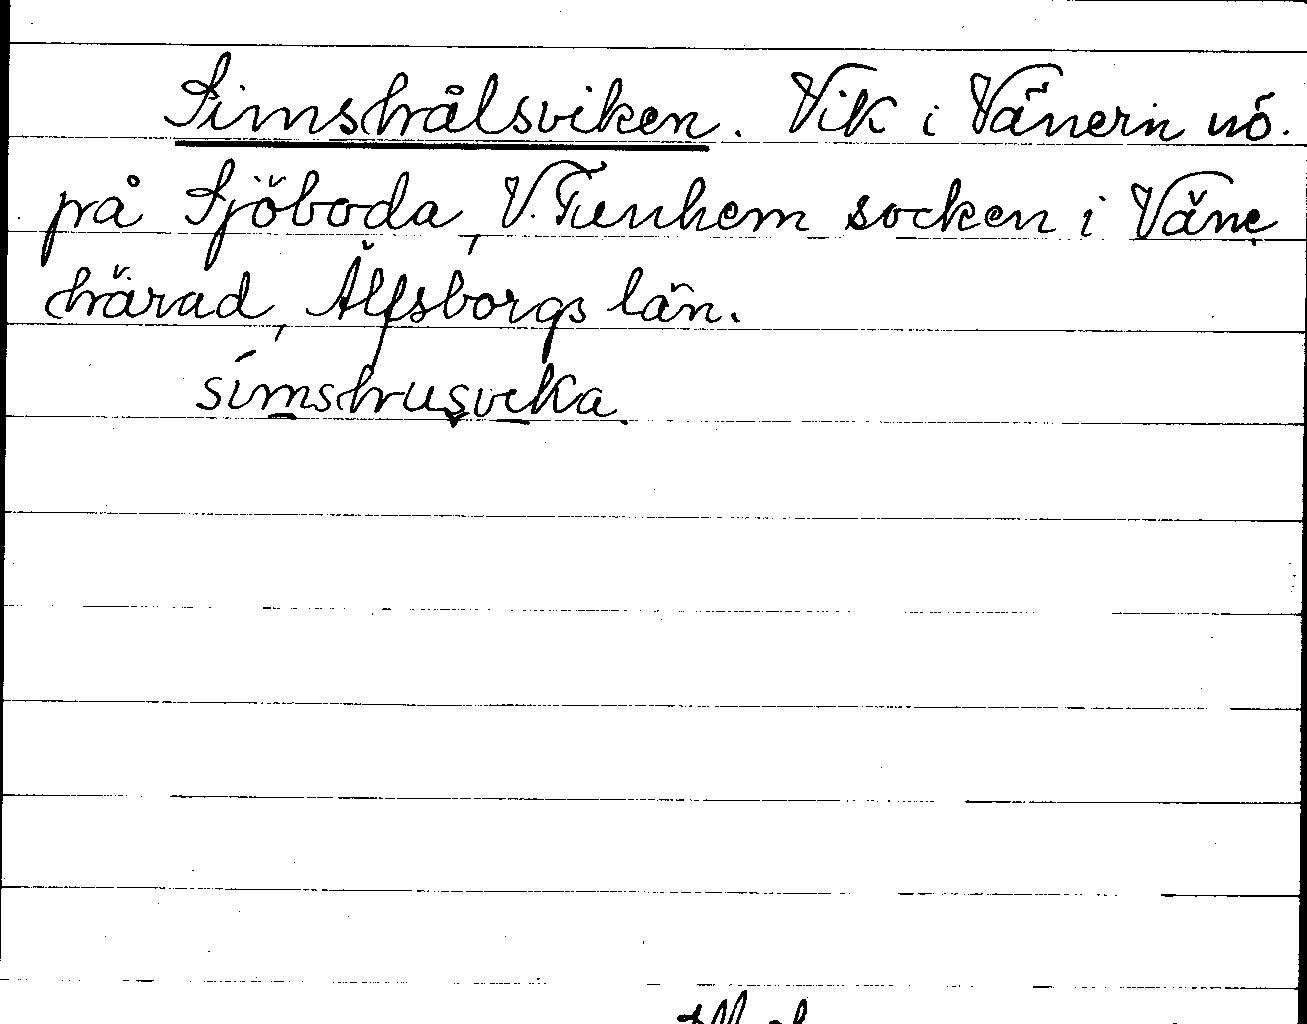 Simshålsviken. Vik i Vänern nö.
på Sjöboda, V. Tunhem socken i Väne
härad, Älfsborgs län.
simshusvika